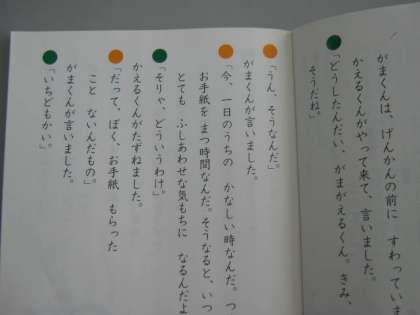 がまくんは、げんかんの前に すわっていま
かえるくんがやって来て、言いました。
「どうしたんだい、がまがえるくん。きみ、
そうだね。」
「うん、そうなんだ。」
がまくんが言いました。
「今、一日のうちの かなしい時なんだ。つ
お手紙を まつ時間なんだ。そうなると、いつ
とても ふしあわせな気もちに なるんだよ
「そりゃ、どういうわけ。」
かえるくんがたずねました。
「だって、ぼく、お手紙 もらった
こと ないんだもの。」
がまくんが言いました。
「いちどもかい。」